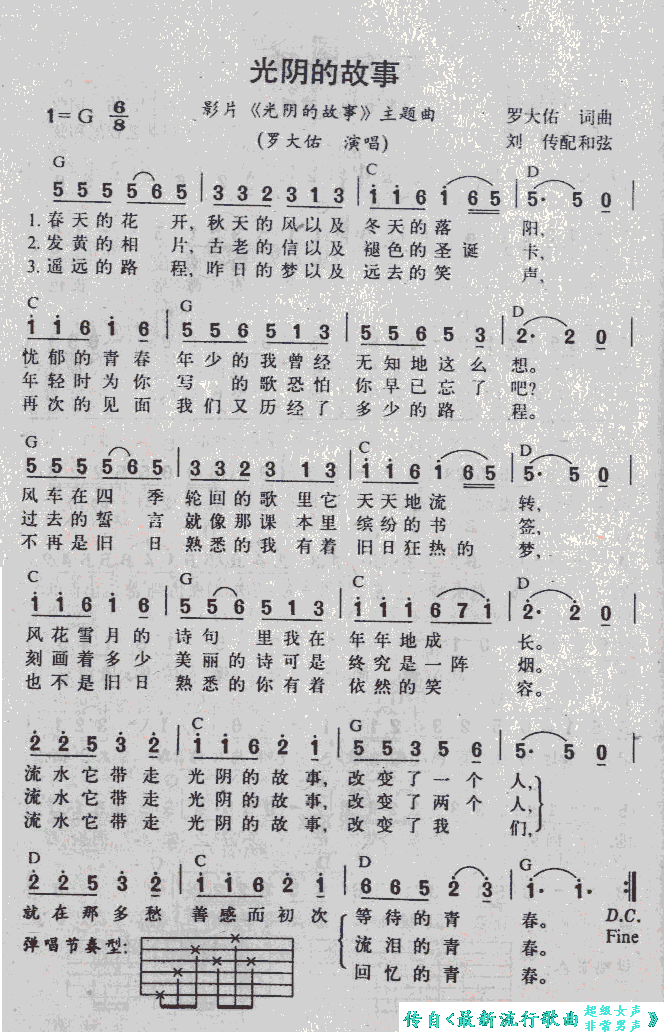 光阴的故事
1=G 6/8
影片《光阴的故事》主题曲
(罗大佑 演唱)
罗大佑 词曲
刘 传配和弦
G C D
5 5 5 5 6 5 | 3 3 2 3 1 3 | i i 6 i 6 5 | 5· 5 0
1. 春天的花 开, 秋天的风以及 冬天的落 阳,
2. 发黄的相 片, 古老的信以及 褪色的圣诞 卡,
3. 遥远的路 程, 昨日的梦以及 远去的笑 声,
C G D
i i 6 i 6 | 5 5 6 5 1 3 | 5 5 6 5 3 | 2· 2 0
忧郁的青春 年少的我曾经 无知地这么 想。
年轻时为你 写 的歌恐怕 你早已忘了 吧?
再次的见面 我们又历经了 多少的路 程。
G C D
5 5 5 5 6 5 | 3 3 2 3 1 3 | i i 6 i 6 5 | 5· 5 0
风车在四 季 轮回的歌 里它 天天地流 转,
过去的誓 言 就像那课 本里 缤纷的书 签,
不再是旧 日 熟悉的我 有着 旧日狂热的 梦,
C G C D
i i 6 i 6 | 5 5 6 5 1 3 | i i i 6 7 i | 2· 2 0
风花雪月的 诗句 里我在 年年地成 长。
刻画着多少 美丽的诗可是 终究是一阵 烟。
也不是旧日 熟悉的你有着 依然的笑 容。
D C G
2 2 5 3 2 | i i 6 2 i | 5 5 3 5 6 | 5· 5 0
流水它带走 光阴的故事, 改变了一个 人,
流水它带走 光阴的故事, 改变了两个 人,
流水它带走 光阴的故事, 改变了我 们,
D C D G
2 2 5 3 2 | i i 6 2 i | 6 6 5 2 3 | i· i· :||
就在那多愁 善感而初次 等待的青 春。 D.C.
弹唱节奏型: 流泪的青 春。 Fine
回忆的青 春。
传自《最新流行歌曲 超级女声 非常男声 》